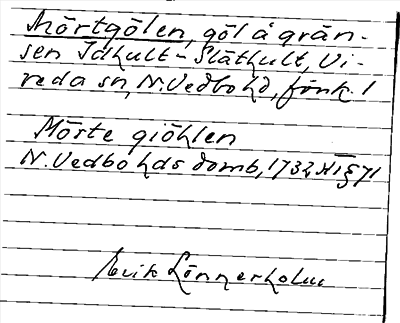 Mörtgölen, göl å grän-
sen Idhult-Släthult, Vi-
reda sn, N. Vedbo hd, Jönk. l
Mörte giöhlen
N. Vedbo hds domb, 1732 Ht § 71
Erik Lönnerholm